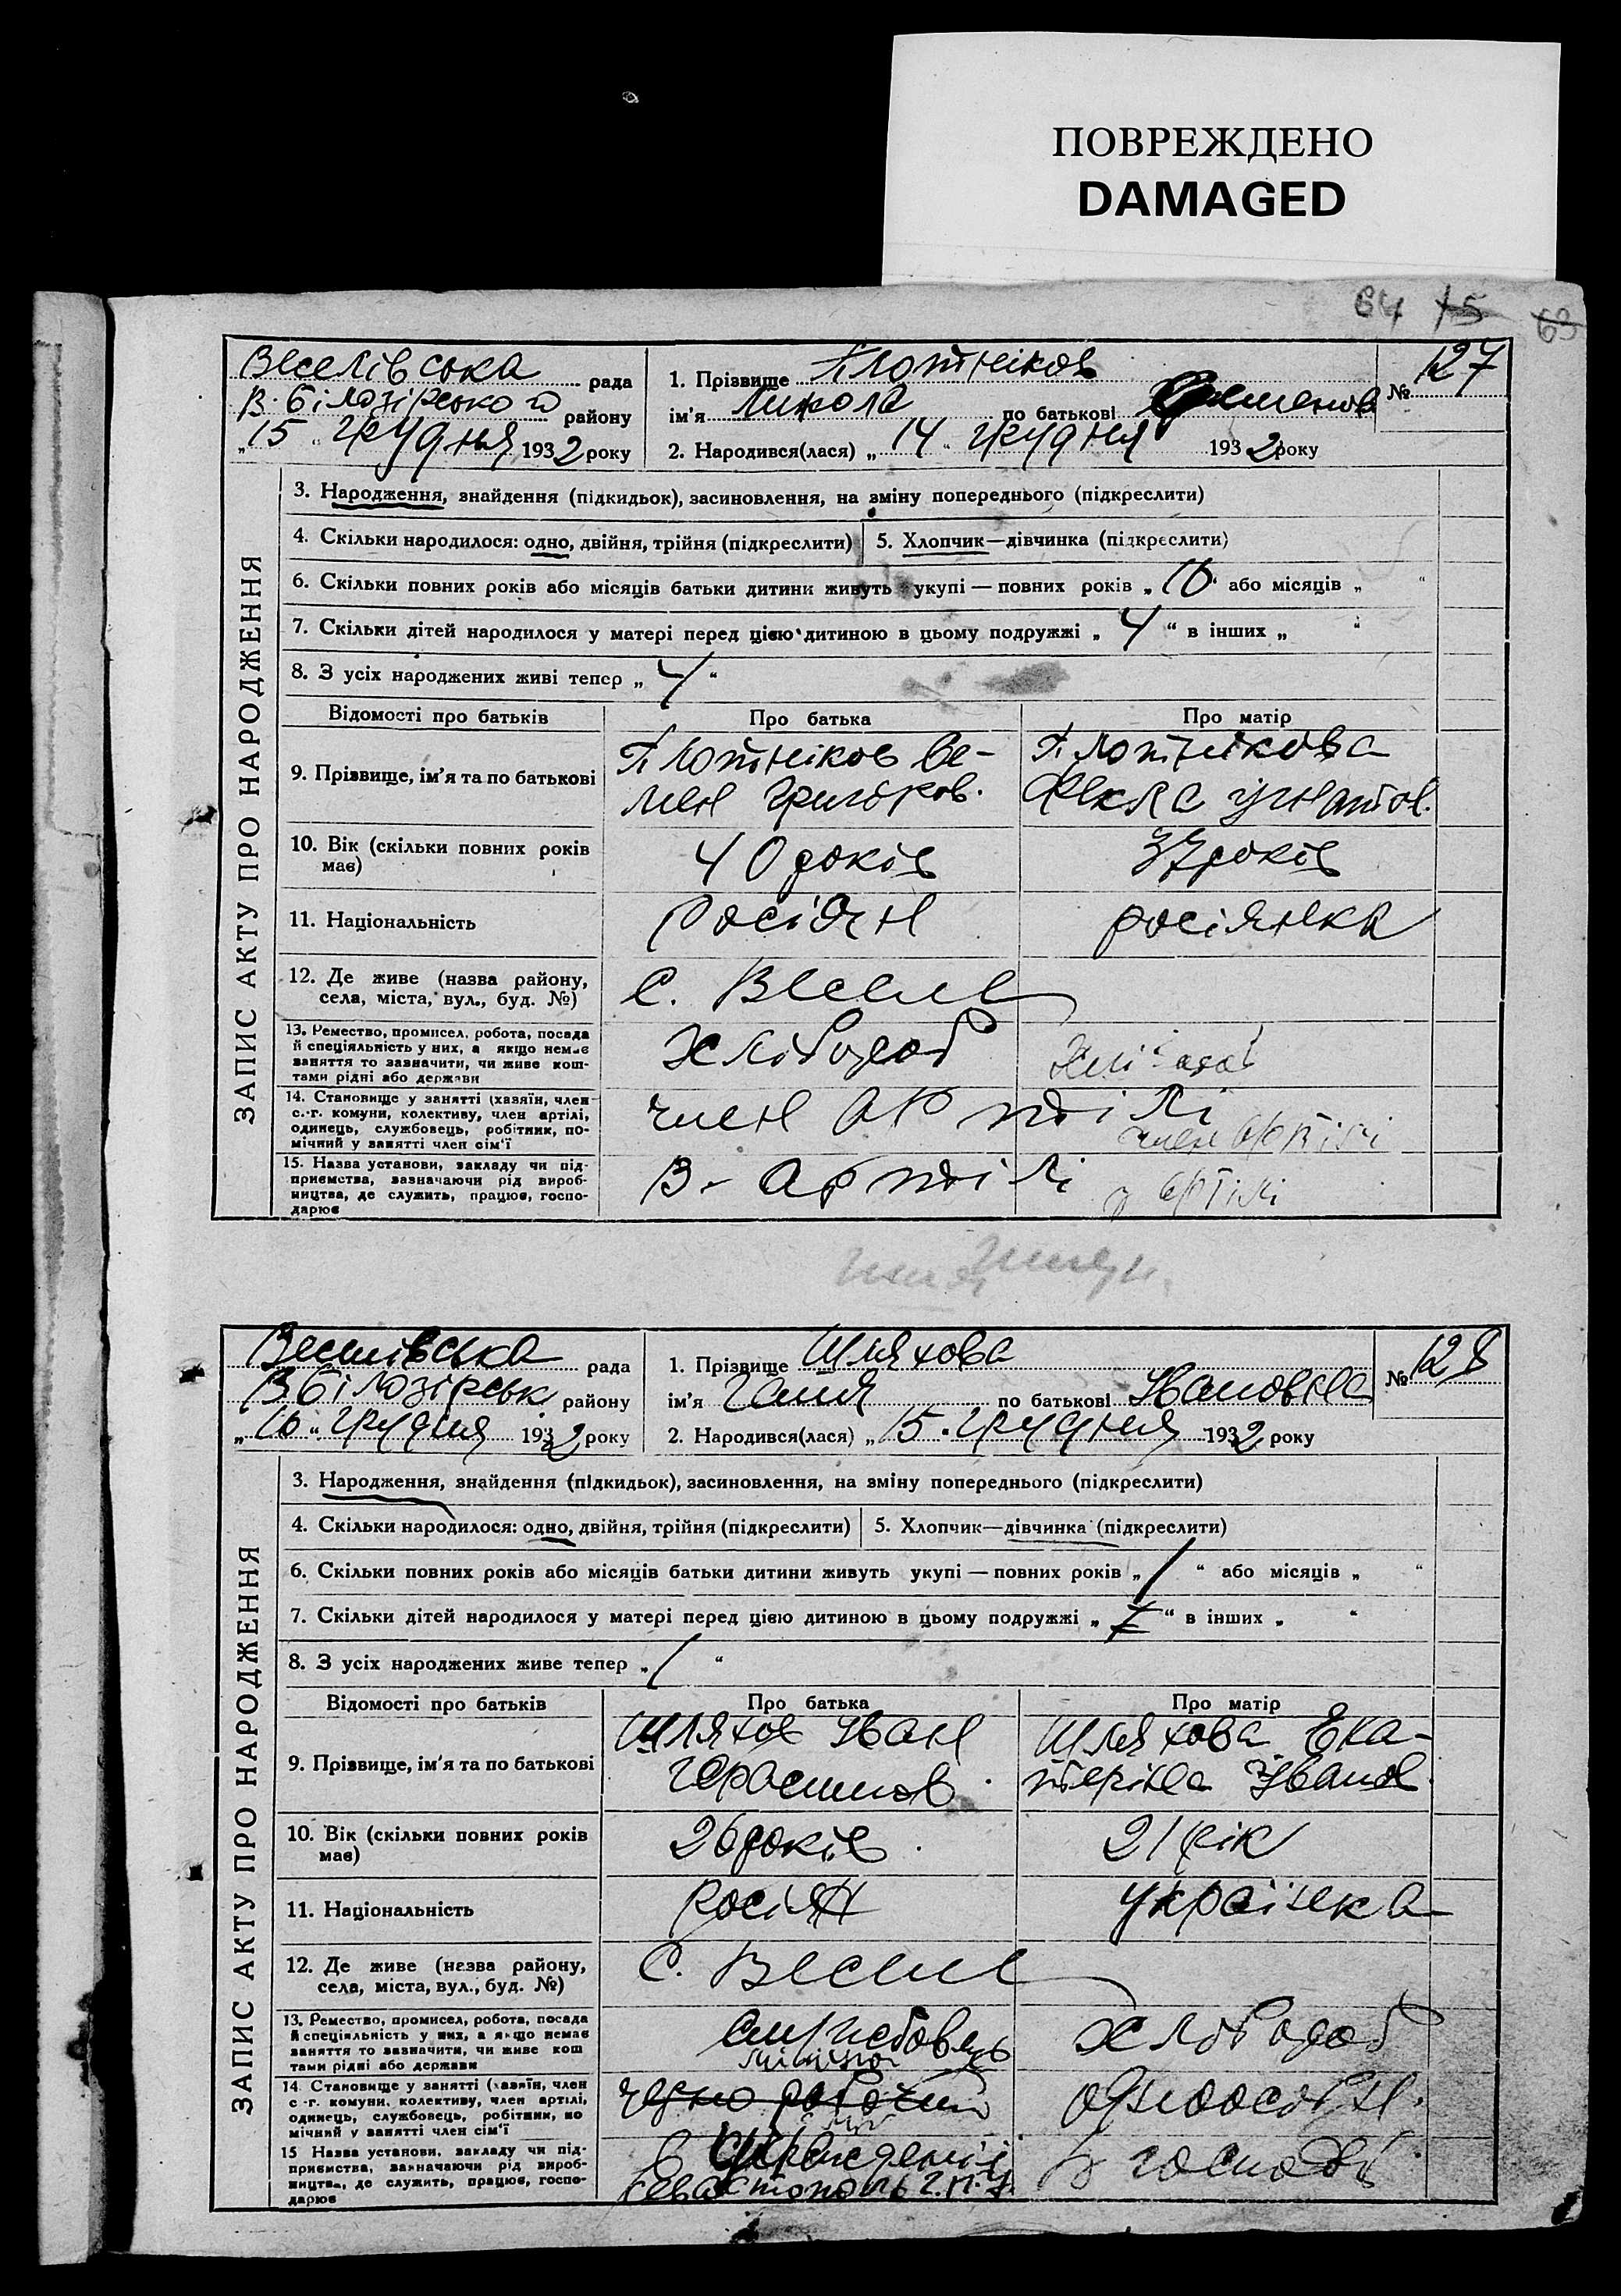 ПОВРЕЖДЕНО
DAMAGED
64 75 63
Веселівська рада
В. Білозірського району
„15“ грудня 1932 року
1. Прізвище Плотніков
ім'я Микола по батькові Семенов
2. Народився(лася) „14“ грудня 1932 року
№ 127
ЗАПИС АКТУ ПРО НАРОДЖЕННЯ
3. Народження, знайдення (підкидьок), засиновлення, на зміну попереднього (підкреслити)
4. Скільки народилося: одно, двійня, трійня (підкреслити) 5. Хлопчик—дівчинка (підкреслити)
6. Скільки повних років або місяців батьки дитини живуть укупі — повних років „10“ або місяців „ “
7. Скільки дітей народилося у матері перед цією дитиною в цьому подружжі „4“ в інших „ “
8. З усіх народжених живі тепер „4“
Відомості про батьків Про батька Про матір
9. Прізвище, ім'я та по батькові
Плотніков Се-
мен Григоров.
Плотнікова
Фекла Ігнатов.
10. Вік (скільки повних років
має)
40 років
37 років
11. Національність
Росіян
росіянка
12. Де живе (назва району,
села, міста, вул., буд. №)
С. Веселе
13. Ремество, промисел, робота, посада
й спеціяльність у них, а якщо немає
заняття то зазначити, чи живе кош-
тами рідні або держави
Хлібороб
14. Становище у занятті (хазяїн, член
с.-г. комуни, колективу, член артілі,
одинець, службовець, робітник, по-
мічний у занятті член сім'ї
член артілі
член артілі
15. Назва установи, закладу чи під-
приємства, зазначаючи рід вироб-
ництва, де служить, працює, госпо-
дарює
В. артілі
у артілі
Веселівська рада
В Білозірськ району
„16“ грудня 1932 року
1. Прізвище Шляхова
ім'я Галія по батькові Івановна
2. Народився(лася) „15. грудня 1932 року
№ 128
ЗАПИС АКТУ ПРО НАРОДЖЕННЯ
3. Народження, знайдення (підкидьок), засиновлення, на зміну попереднього (підкреслити)
4. Скільки народилося: одно, двійня, трійня (підкреслити) 5. Хлопчик—дівчинка (підкреслити)
6. Скільки повних років або місяців батьки дитини живуть укупі — повних років „1“ або місяців „ “
7. Скільки дітей народилося у матері перед цією дитиною в цьому подружжі „ “ в інших „ “
8. З усіх народжених живе тепер „1“
Відомості про батьків Про батька Про матір
9. Прізвище, ім'я та по батькові
Шляхов Іван
Герасимов.
Шляхова Ека-
теріна Іванов.
10. Вік (скільки повних років
має)
26 років
21 рік
11. Національність
росіян
українка
12. Де живе (назва району,
села, міста, вул., буд. №)
С. Веселе
13. Ремество, промисел, робота, посада
й спеціяльність у них, а якщо немає
заняття то зазначити, чи живе кош
тами рідні або держави
службовець
Хлібороб
14. Становище у занятті (хазяїн, член
с -г. комуни, колективу, член артілі,
одинець, службовець, робітник, по
мічний у занятті член сім'ї
одноосібн.
15 Назва установи, закладу чи під-
приємства, зазначаючи рід вироб-
ництва, де служить, працює, госпо-
дарює
Севастополь
в господі